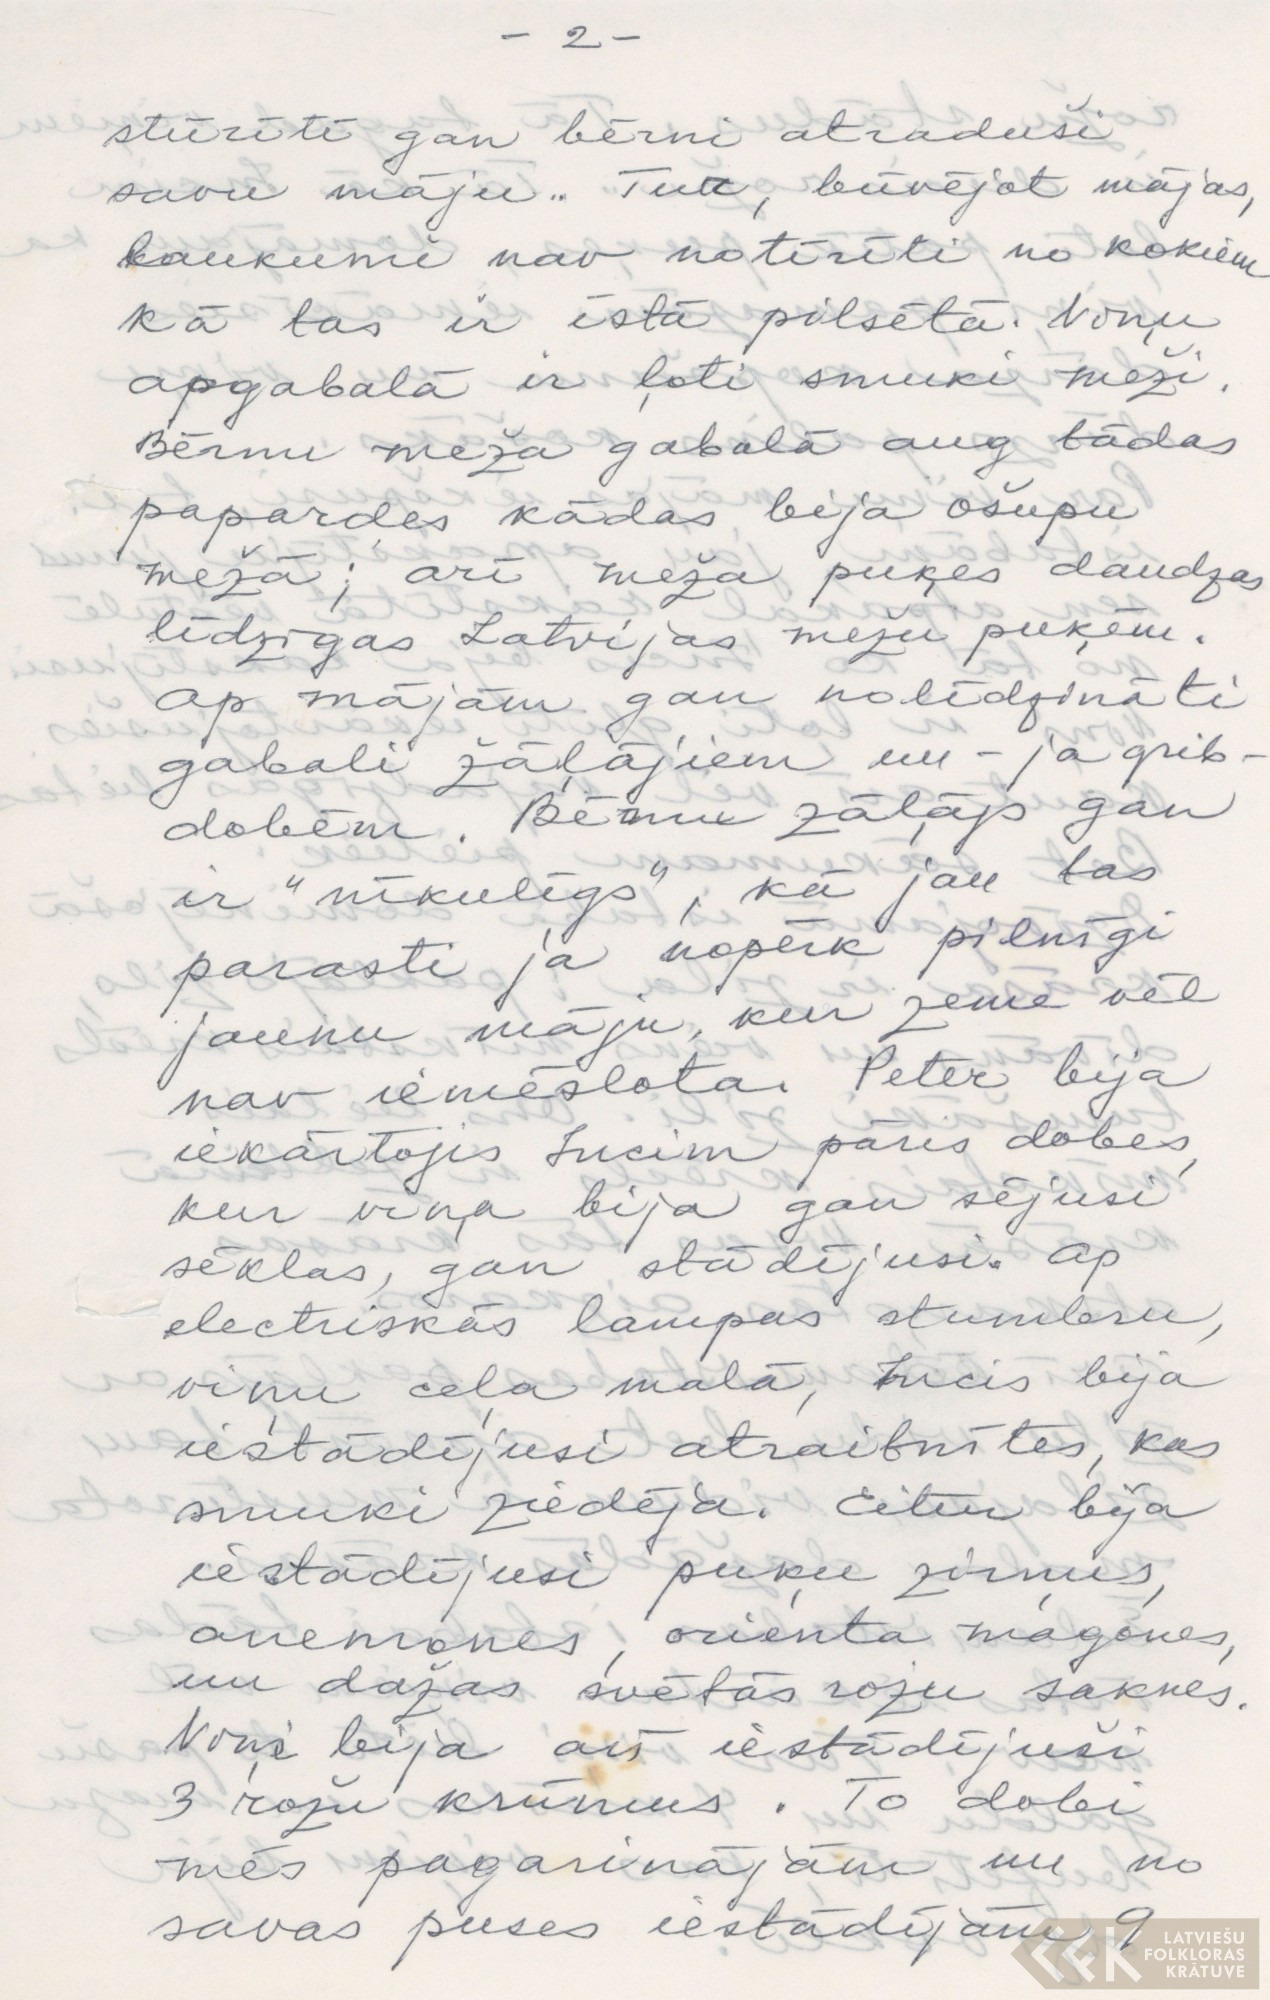 - 2 -
stūrītī gan bērni atraduši
savu māju.. Tur, būvējot mājas,
laukumi nav notīrīti no kokiem
kā tas ir īstā pilsētā. Viņu
apgabalā ir ļoti smuki meži.
Bērnu meža gabalā aug tādas
papardes kādas bija ošupu
mežā; arī meža puķes daudzas
līdzīgas Latvijas mežu puķēm.
Ap mājām gan nolīdzināti
gabali zāļājiem un - ja grib -
dobēm. Bērnu zāļājs gan
ir "nīkulīgs", kā jau tas
parasti ja nopērk pilnīgi
jaunu māju, kur zeme vēl
nav iemēslota. Peter bija
iekārtojis Lucim pāris dobes,
kur viņa bija gan sējusi
sēklas, gan stādījusi. Ap
electriskās lampas stumbru,
viņu ceļa malā, Lucis bija
iestādījusi atraitnītes, kas
smuki ziedēja. Citur bija
iestādījusi puķu zirņus,
anemones, orienta magones,
un dažas svētās rožu saknes.
Viņi bija arī iestādījuši
3 rožu krūmus. To dobi
mēs pagarinājām un no
savas puses iestādījām 9
LATVIEŠU
FOLKLORAS
KRĀTUVE